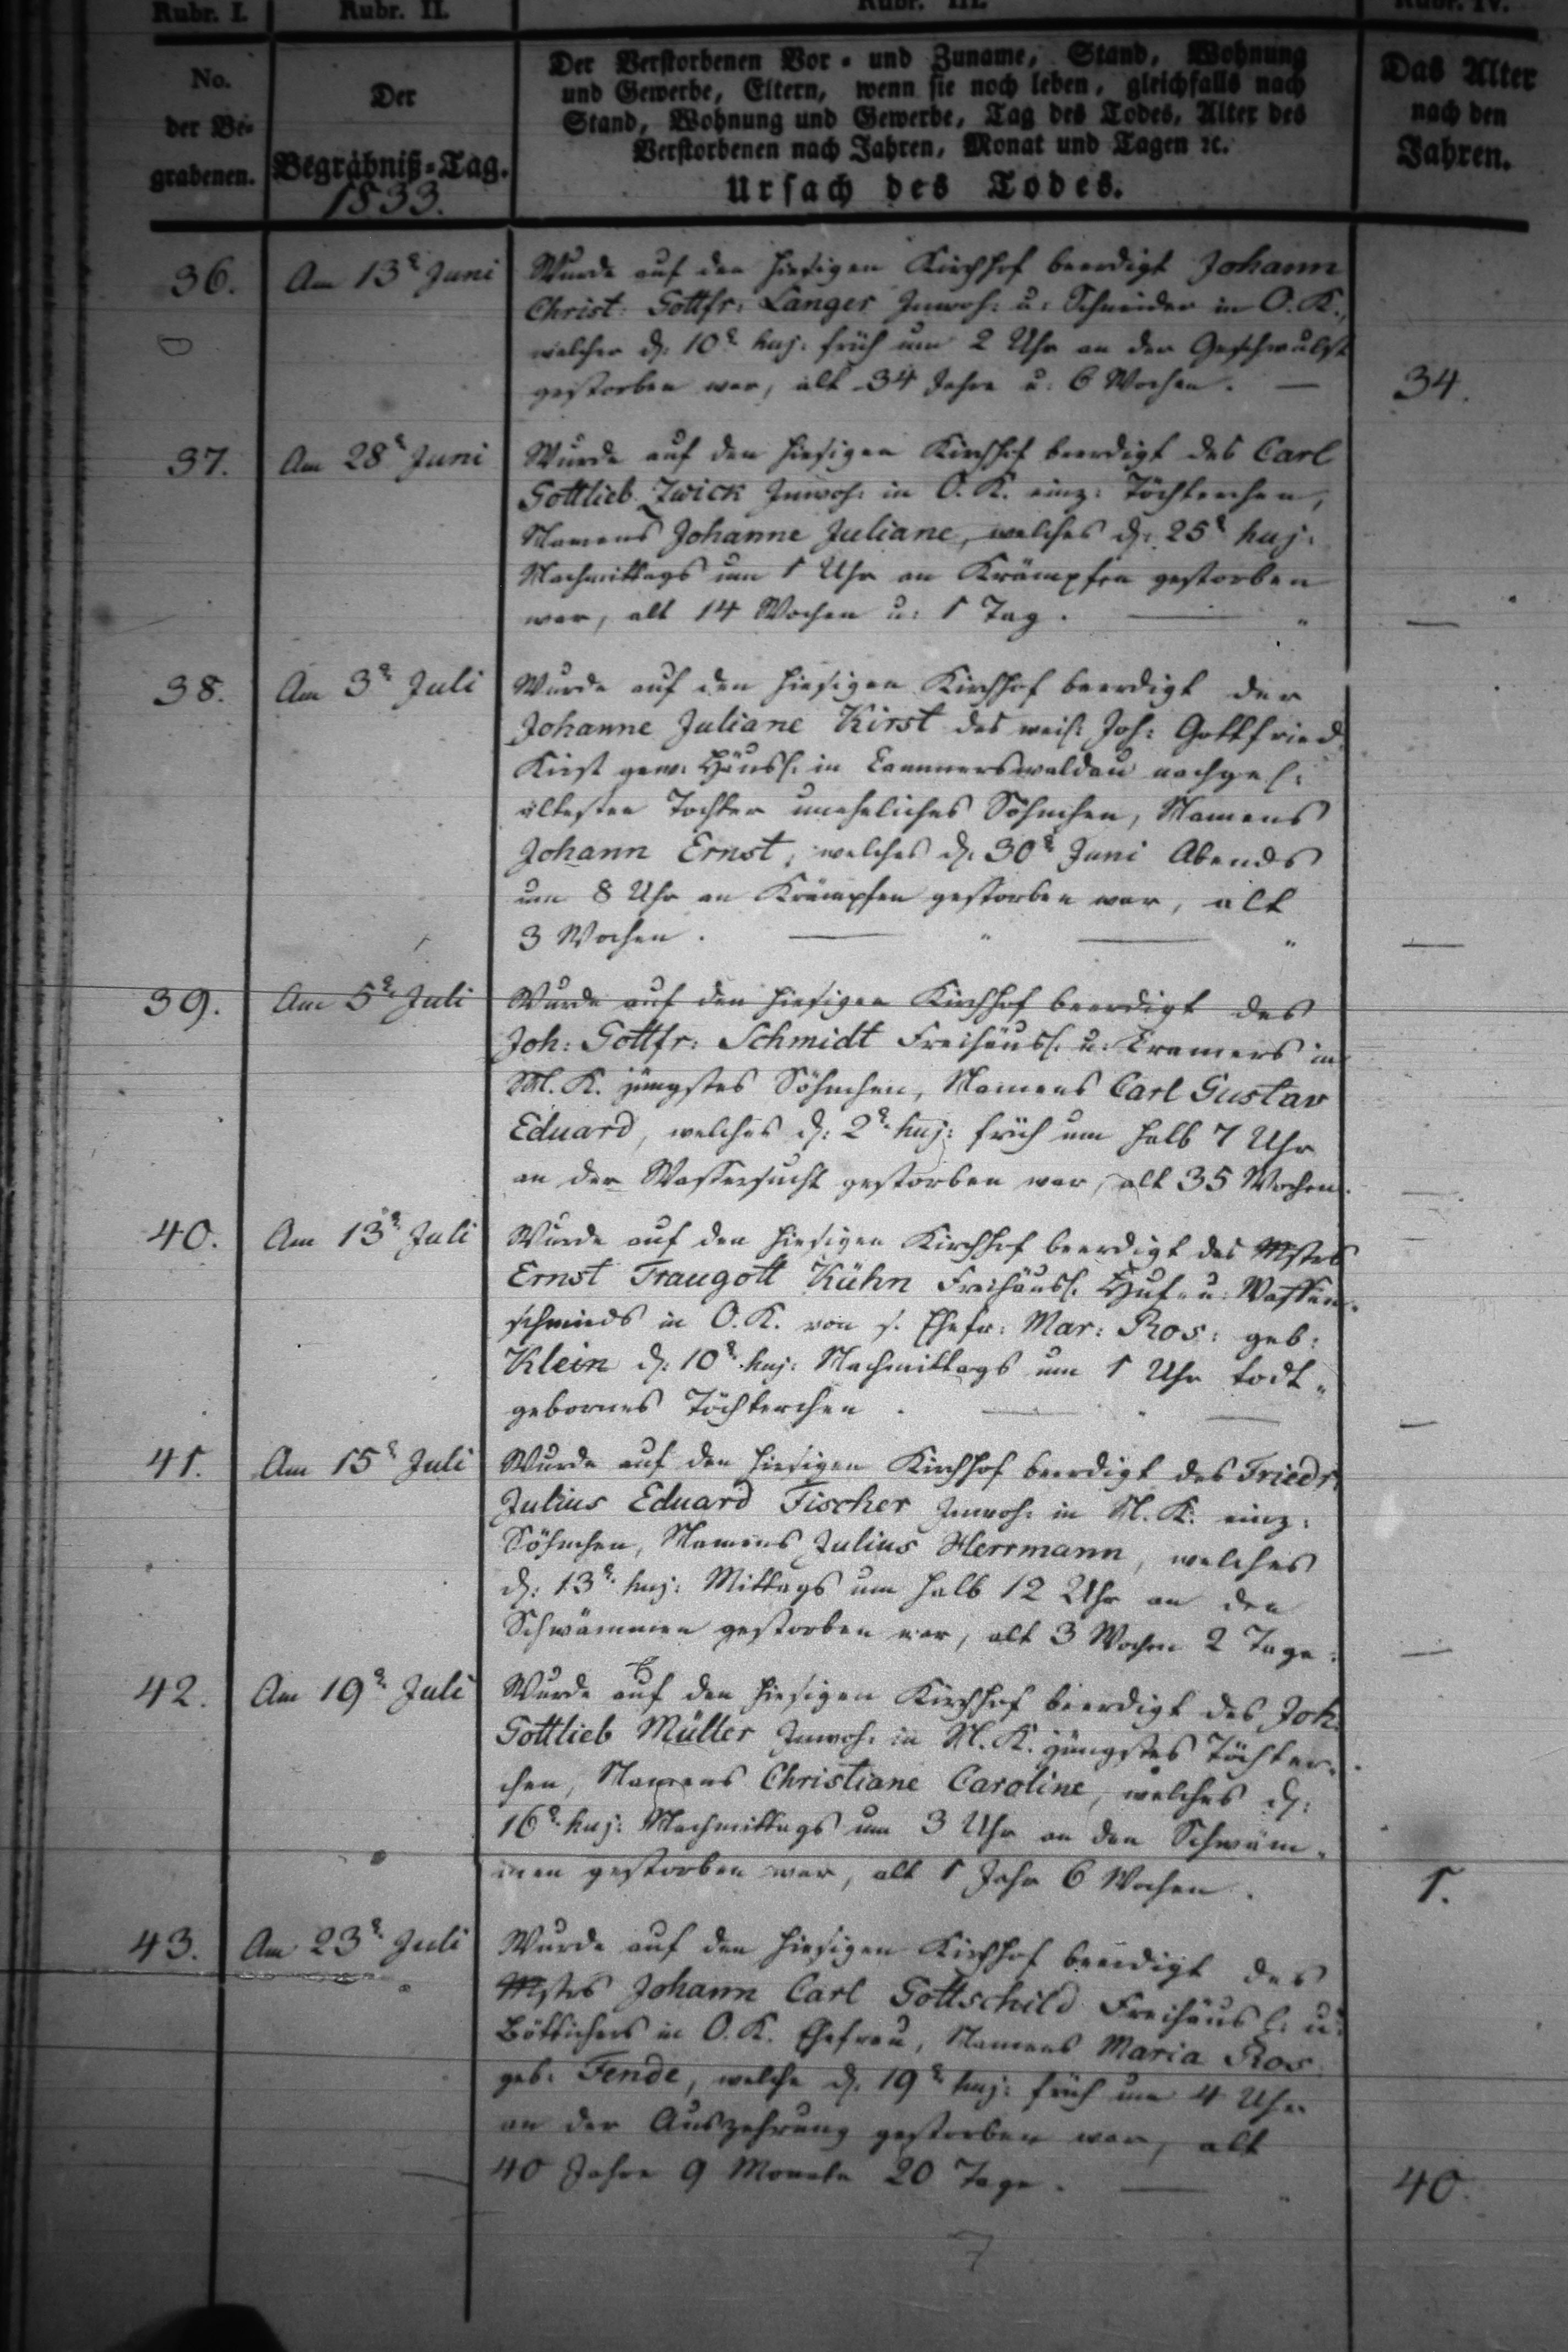 Rubr. I.
Rubr. II.
Rubr. III.
Rubr. IV.
No.
der Be-
grabenen.
Der
Begräbniß-Tag.
1833.
Der Verstorbenen Vor- und Zuname, Stand, Wohnung
und Gewerbe, Eltern, wenn sie noch leben, gleichfalls nach
Stand, Wohnung und Gewerbe, Tag des Todes, Alter des
Verstorbenen nach Jahren, Monat und Tagen ꝛc.
Ursach des Todes.
Das Alter
nach den
Jahren.
36.
Am 13t Juni
Wurde auf den hiesigen Kirchhof beerdigt Johann
Christ: Gottfr: Langer Inwoh: u: Schneider in O. K.,
welcher d: 10t huj: früh um 2 Uhr an der Geschwulst
gestorben war, alt 34 Jahre u: 6 Wochen. —
34.
37.
Am 28t Juni
Wurde auf den hiesigen Kirchhof beerdigt des Carl
Gottlieb Zwick Inwoh: in O. K. einz: Töchterchen,
Namens Johanne Juliane, welches d: 25t huj:
Nachmittags um 1 Uhr an Krämpfen gestorben
war, alt 14 Wochen u: 1 Tag. — "
—
38.
Am 3t Juli
Wurde auf den hiesigen Kirchhof beerdigt der
Johanne Juliane Kirst des weil: Joh: Gottfried
Kirst gew: Häusl: in Cammerswaldau nachgel:
ältesten Tochter uneheliches Söhnchen, Namens
Johann Ernst, welches d: 30t Juni Abends
um 8 Uhr an Krämpfen gestorben war, alt
3 Wochen. — " — "
—
39.
Am 5t Juli
Wurde auf den hiesigen Kirchhof beerdigt des
Joh: Gottfr: Schmidt Freihäusl: u: Kramers in
N. K. jüngstes Söhnchen, Namens Carl Gustav
Eduard, welches d: 2t huj: früh um halb 7 Uhr
an der Wassersucht gestorben war, alt 35 Wochen.
—
40.
Am 13t Juli
Wurde auf den hiesigen Kirchhof beerdigt des Mstrs
Ernst Traugott Kühn Freihäusl: Huf- u: Waffen-
schmieds in O. K. von s. Ehefr: Mar: Ros: geb:
Klein d: 10t huj: Nachmittags um 1 Uhr todt-
gebornes Töchterchen. — " —
—
41.
Am 15t Juli
Wurde auf den hiesigen Kirchhof beerdigt des Friedr.
Julius Eduard Fischer Inwoh: in N. K. einz:
Söhnchen, Namens Julius Herrmann, welches
d: 13t huj: Mittags um halb 12 Uhr an den
Schwämmen gestorben war, alt 3 Wochen 2 Tage.
—
42.
Am 19t Juli
Wurde auf den hiesigen Kirchhof beerdigt des Joh:
Gottlieb Müller Inwoh: in N. K. jüngstes Töchter-
chen, Namens Christiane Caroline, welches d:
16t huj: Nachmittags um 3 Uhr an den Schwäm-
men gestorben war, alt 1 Jahr 6 Wochen.
1.
43.
Am 23t Juli
Wurde auf den hiesigen Kirchhof beerdigt des
Mstrs Johann Carl Gottschild Freihäusl: u:
Böttichers in O. K. Ehefrau, Namens Maria Ros:
geb: Fende, welche d: 19t huj: früh um 4 Uhr
an der Auszehrung gestorben war, alt
40 Jahre 9 Monate 20 Tage. — "
40.